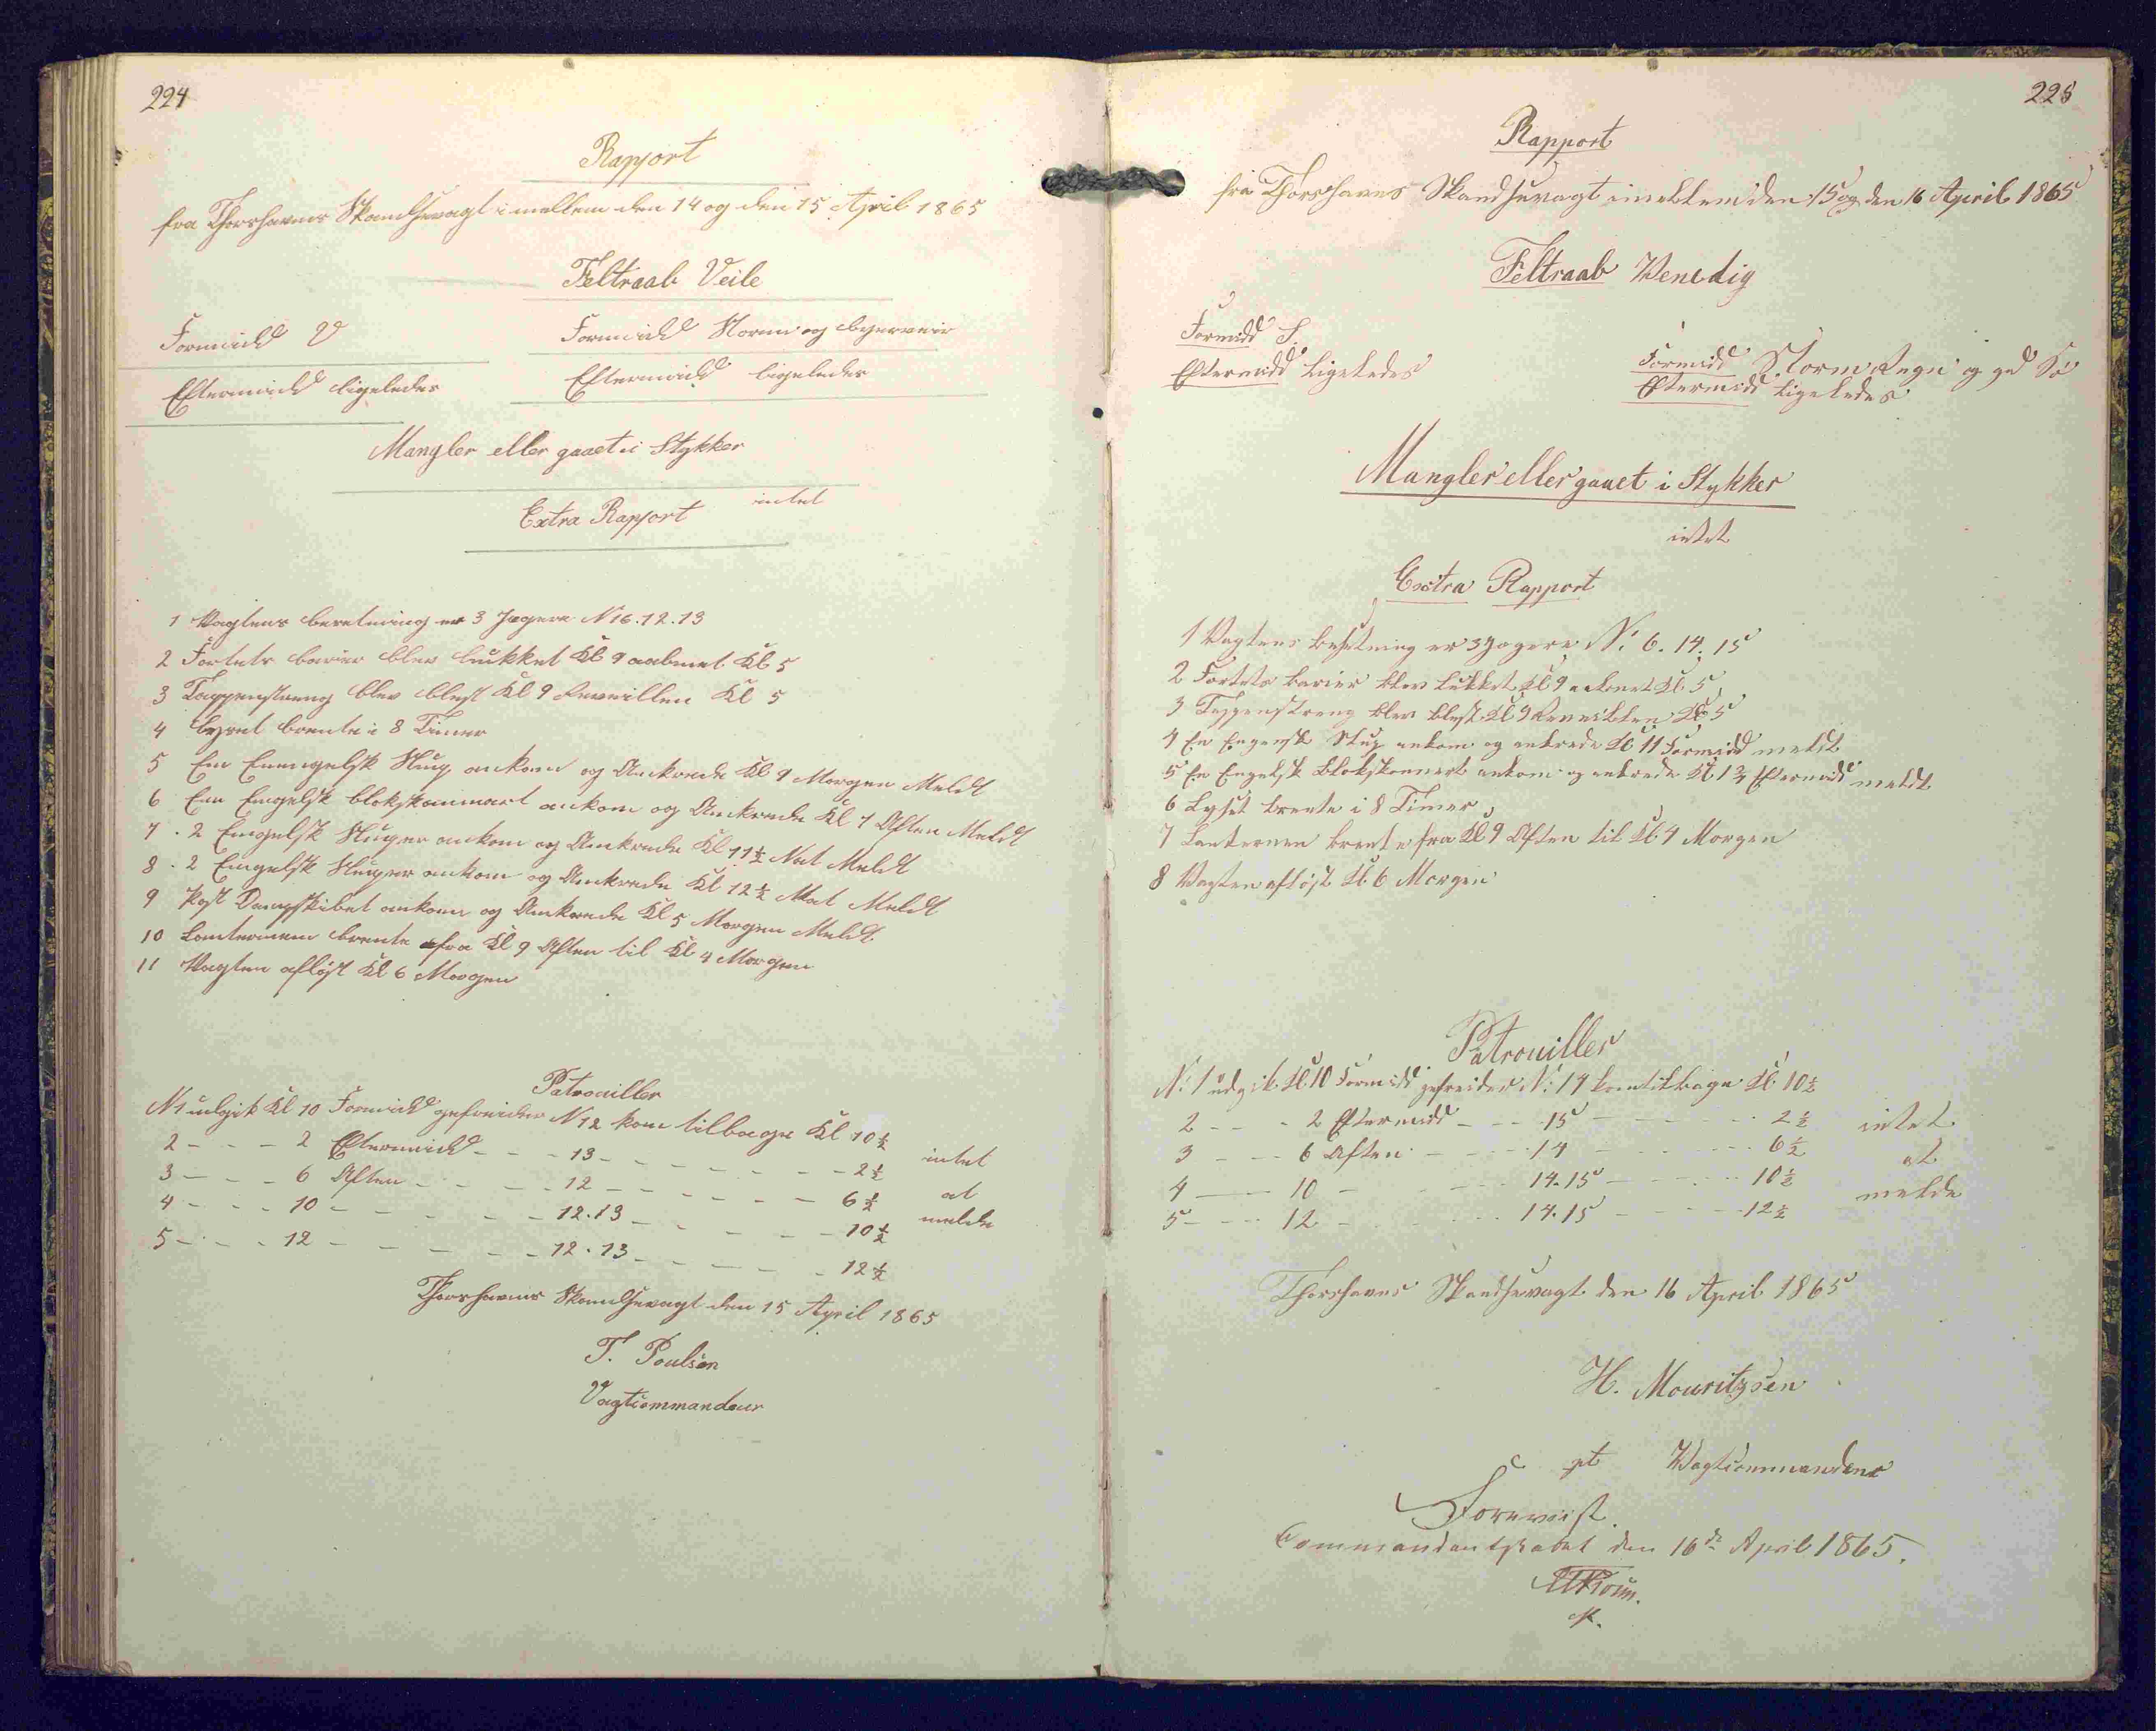 224
Rapport
fra Thorshavns Skandsevagt imellem den 14 og den 15 April 1865
Feltraab Veile
Formidd V
Formidd Storm og bygerveir
Eftermidd ligeledes
Eftermidd ligeledes
Mangler eller gaaet i Stykker
intet
Extra Rapport
1 Vagtens beretning er 3 Jægere N 6. 12. 13
2 Fortets barier blev lukket Kl 9 aabnet Kl 5
3 Tappenstreng blev blest Kl 9 Reveillen Kl 5
4 lyset brente i 8 Timer
5 Enn Enngelsk Slup ankom og Ankrede Kl 9 Morgen Meldt
6 Enn Engelsk blokskonnart ankom og Ankrede Kl 7 Aften Meldt
7. 2 Engelsk Sluper ankom og Ankrede Kl 11½ Nat Meldt
8. 2 Engelsk Sluper ankom og Ankrede Kl 12½ Nat Meldt
9 Post Dampskibet ankom og Ankrede Kl 5 Morgen Meldt
10 Lanternen brente fra Kl 9 Aften til Kl 4 Morgen
11 Vagten afløst Kl 6 Morgen
Patrouiller
N 1 udgik Kl 10 Formidd gefreider N 12 kom tilbage Kl 10½
2 - - - 2 Eftermidd - - - 13 - - - - - - - 2½ intet
3 - - - 6 Aften - - - - 12 - - - - - - 6½ at
4 - - - 10 - - - - - - 12.13 - - - - - - 10½ melde
5 - - - 12 - - - - - - 12.13 - - - - - 12½
Thorshavns Skandsevagt den 15 April 1865
T. Poulsen
Vagtcommandeur
225
Rapport
fra Thorshavns Skandsevagt imellem den 15 og den 16 April 1865
Feltraab Venedig
Formidd S.
Formidd Storm Regn og gd Sø
Eftermidd Ligeledes
Eftermidd Ligeledes
Mangler eller gaaet i Stykker
intet
Extra Rapport
1 Vagtens besetning er 3 Jægere N: 6. 14. 15
2 Fortets barier blev lukket Kl 9 aabnet Kl. 5
3 Tappenstreng blev blest Kl 9 Reveillen Kl 5
4 En Engensk Slup ankom og ankrede Kl 11 Formidd meldt
5 En Engelsk Blokskonnert ankom og ankrede Kl 1¾ Eftermidd meldt
6 Lyset brente i 8 Timer
7 Lanternen brente fra Kl 9 Aften til Kl. 4 Morgen
8 Vagten afløst Kl. 6 Morgen
Patrouiller
N: 1 udgik Kl. 10 Formidd gefreider N: 14 kom tilbage Kl. 10½
2 - - - 2 Eftermidd - - - 15 - - - - - 2½ intet
3 - - - 6 Aften - - - - 14 - - - - - 6½ at
4 - - - 10 - - - - 14.15 - - - - 10½ melde
5 - - - 12 - - - - 14.15 - - - - 12½
Thorshavns Skandsevagt den 16 April 1865
H. Mouritzsen
pt Vagtcommandeur
Foreviist.
Commandantskabet den 16de April 1865.